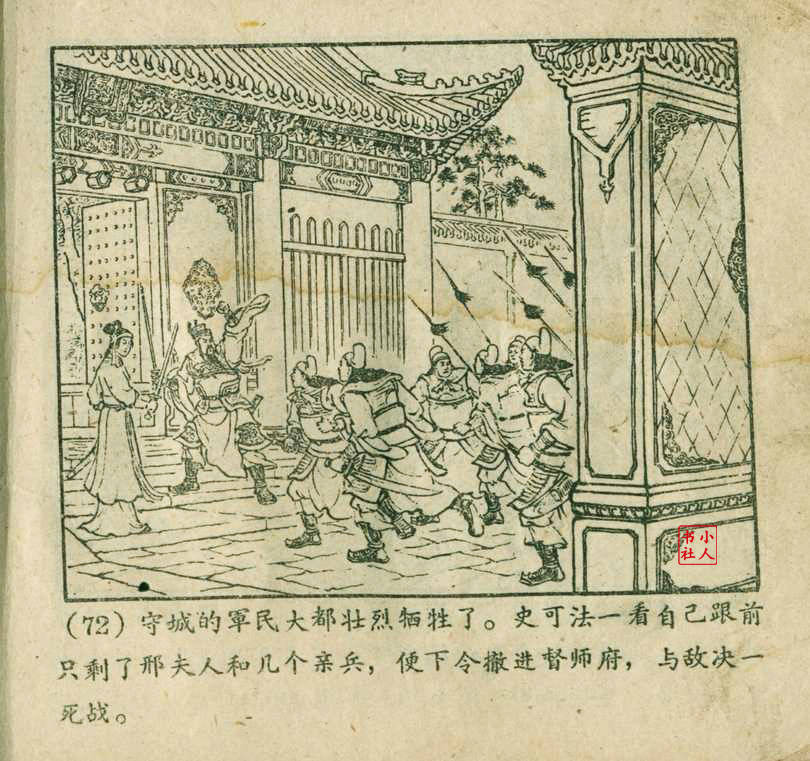 小人
书社
(72) 守城的軍民大都壮烈牺牲了。史可法一看自己跟前
只剩了邢夫人和几个亲兵，便下令撤进督师府，与敌决一
死战。